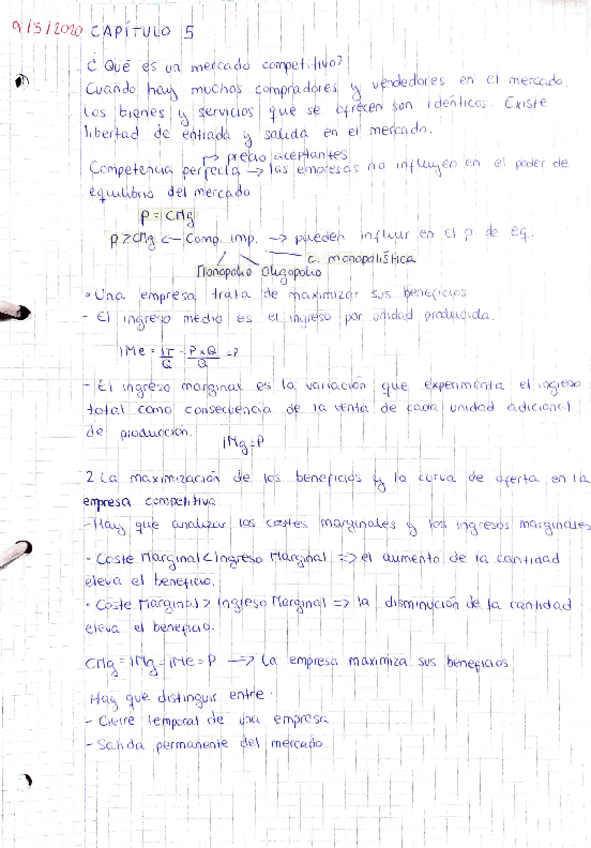 9/3/2020 CAPÍTULO 5
¿ Qué es un mercado competitivo?
Cuando hay muchos compradores y vendedores en el mercado.
Los bienes y servicios que se ofrecen son idénticos. Existe
libertad de entrada y salida en el mercado.
↱ precio aceptantes
Competencia perfecta → las empresas no influyen en el poder de
equilibrio del mercado
P = CMg
P > CMg ← Comp. imp. → pueden influir en el p. de eq.
c. monopolística
Monopolio Oligopolio
• Una empresa trata de maximizar sus beneficios
- El ingreso medio es el ingreso por unidad producida.
IMe = IT/Q = P×Q/Q = P
- El ingreso marginal es la variación que experimenta el ingreso
total como consecuencia de la venta de cada unidad adicional
de producción.
IMg = P
2 La maximización de los beneficios y la curva de oferta en la
empresa competitiva
- Hay que analizar los costes marginales y los ingresos marginales
- Coste Marginal < Ingreso Marginal => el aumento de la cantidad
eleva el beneficio.
• Coste Marginal > Ingreso Marginal => la disminución de la cantidad
eleva el beneficio.
CMg = IMg = IMe = P → La empresa maximiza sus beneficios
Hay que distinguir entre.
- Cierre temporal de una empresa
- Salida permanente del mercado